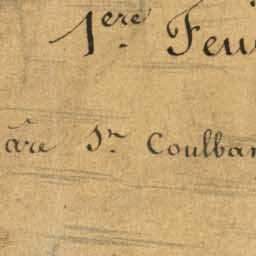 1ere Feui
are Sr Coulbar